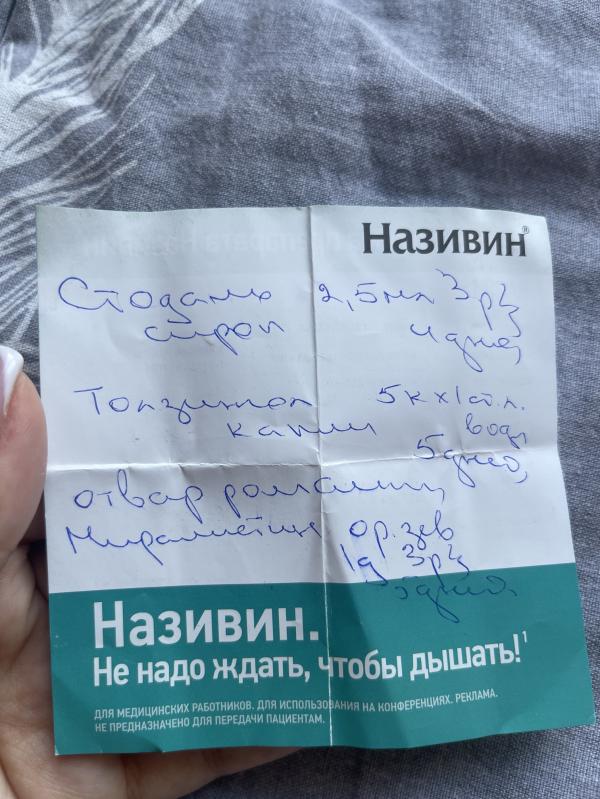 Називин®
Стодаль 2,5 мл 3 р/д
сироп 4 дня,
Тонзилгон 5 к х 1 ст. л.
капли воды
5 дней,
отвар ромашки,
Мирамистин ор. зев
1д 3 р/д
5 дней.
Називин.
Не надо ждать, чтобы дышать!¹
ДЛЯ МЕДИЦИНСКИХ РАБОТНИКОВ. ДЛЯ ИСПОЛЬЗОВАНИЯ НА КОНФЕРЕНЦИЯХ. РЕКЛАМА.
НЕ ПРЕДНАЗНАЧЕНО ДЛЯ ПЕРЕДАЧИ ПАЦИЕНТАМ.